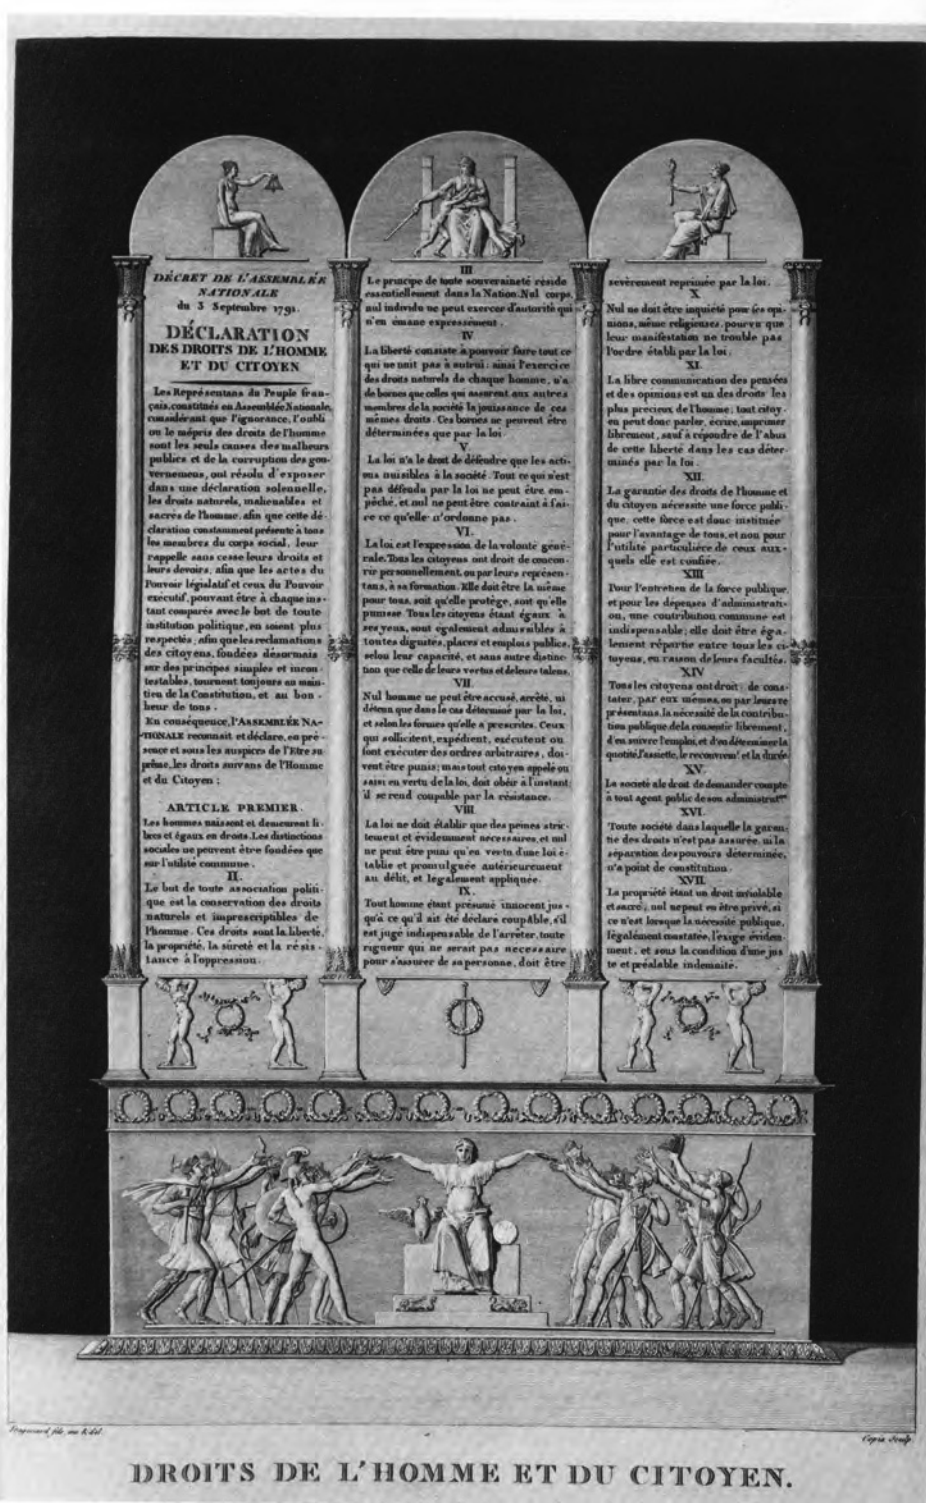 DÉCRET DE L'ASSEMBLÉE
NATIONALE
du 3 Septembre 1791.
DÉCLARATION
DES DROITS DE L'HOMME
ET DU CITOYEN
Les Représentans du Peuple fran-
çais, constitués en Assemblée Nationale,
considérant que l'ignorance, l'oubli
ou le mépris des droits de l'homme
sont les seuls causes des malheurs
publics et de la corruption des gou-
vernemens, ont résolu d'exposer
dans une déclaration solennelle,
les droits naturels, inalienables et
sacrés de l'homme, afin que cette dé-
claration constamment présente à tous
les membres du corps social, leur
rappelle sans cesse leurs droits et
leurs devoirs, afin que les actes du
Pouvoir législatif et ceux du Pouvoir
exécutif, pouvant être à chaque ins-
tant comparés avec le but de toute
institution politique, en soient plus
respectés; afin que les reclamations
des citoyens, fondées désormais
sur des principes simples et incon-
testables, tournent toujours au main-
tien de la Constitution, et au bon-
heur de tous.
En conséquence, l'ASSEMBLÉE NA-
TIONALE reconnait et déclare, en pré-
sence et sous les auspices de l'Etre su
prême, les droits suivans de l'Homme
et du Citoyen:
ARTICLE PREMIER.
Les hommes naissent et demeurent li-
bres et égaux en droits. Les distinctions
sociales ne peuvent être fondées que
sur l'utilité commune.
II.
Le but de toute association politi-
que est la conservation des droits
naturels et imprescriptibles de
l'homme. Ces droits sont la liberté,
la propriété, la sûreté et la résis-
tance à l'oppression.
III
Le principe de toute souveraineté réside
essentiellement dans la Nation. Nul corps,
nul individu ne peut exercer d'autorité qui
n'en émane expressément.
IV
La liberté consiste à pouvoir faire tout ce
qui ne nuit pas à autrui: ainsi l'exercice
des droits naturels de chaque homme, n'a
de bornes que celles qui assurent aux autres
membres de la société la jouissance de ces
mêmes droits. Ces bornes ne peuvent être
déterminées que par la loi.
V.
La loi n'a le droit de défendre que les acti-
ons nuisibles à la société. Tout ce qui n'est
pas défendu par la loi ne peut être em-
pêché, et nul ne peut être contraint à fai-
re ce qu'elle n'ordonne pas.
VI.
La loi est l'expression de la volonté géné-
rale. Tous les citoyens ont droit de concou-
rir personnellement, ou par leurs représen-
tans, à sa formation. Elle doit être la même
pour tous, soit qu'elle protège, soit qu'elle
punisse. Tous les citoyens étant égaux à
ses yeux, sont également admissibles à
toutes dignités, places et emplois publics,
selon leur capacité, et sans autre distinc-
tion que celle de leurs vertus et de leurs talens.
VII.
Nul homme ne peut être accusé, arrêté, ni
détenu que dans le cas déterminé par la loi,
et selon les formes qu'elle a prescrites. Ceux
qui sollicitent, expédient, exécutent ou
font exécuter des ordres arbitraires, doi-
vent être punis; mais tout citoyen appelé ou
saisi en vertu de la loi, doit obéir à l'instant
il se rend coupable par la résistance.
VIII
La loi ne doit établir que des peines stric-
tement et évidemment necessaires, et nul
ne peut être puni qu'en vertu d'une loi é-
tablie et promulguée antérieurement
au délit, et légalement appliquée.
IX.
Tout homme étant présumé innocent jus-
qu'à ce qu'il ait été déclaré coupable, s'il
est jugé indispensable de l'arrêter, toute
rigueur qui ne serait pas necessaire
pour s'assurer de sa personne, doit être
sevèrement reprimée par la loi.
X.
Nul ne doit être inquiété pour ses opi-
nions, même religieuses, pourvu que
leur manifestation ne trouble pas
l'ordre établi par la loi.
XI.
La libre communication des pensées
et des opinions est un des droits les
plus precieux de l'homme; tout citoy-
en peut donc parler, écrire, imprimer
librement, sauf à répondre de l'abus
de cette liberté dans les cas déter-
minés par la loi.
XII.
La garantie des droits de l'homme et
du citoyen nécessite une force publi-
que, cette force est donc instituée
pour l'avantage de tous, et non pour
l'utilité particulière de ceux aux-
quels elle est confiée.
XIII
Pour l'entretien de la force publique,
et pour les dépenses d'administrati-
on, une contribution commune est
indispensable; elle doit être éga-
lement répartie entre tous les ci-
toyens, en raison de leurs facultés.
XIV
Tous les citoyens ont droit de cons-
tater, par eux mêmes, ou par leurs re
présentans, la nécessité de la contribu-
tion publique, de la consentir librement,
d'en suivre l'emploi, et d'en déterminer la
quotité, l'assiette, le recouvrem.t et la durée.
XV.
La société a le droit de demander compte
à tout agent public de son administrat.on
XVI.
Toute société dans laquelle la garan-
tie des droits n'est pas assurée, ni la
séparation des pouvoirs déterminée,
n'a point de constitution.
XVII.
La propriété étant un droit inviolable
et sacré, nul ne peut en être privé, si
ce n'est lorsque la nécessité publique,
légalement constatée, l'exige éviden-
ment, et sous la condition d'une jus
te et préalable indemnité.
Fragonard fils, inv. & del.
Copia Sculp.
DROITS DE L'HOMME ET DU CITOYEN.